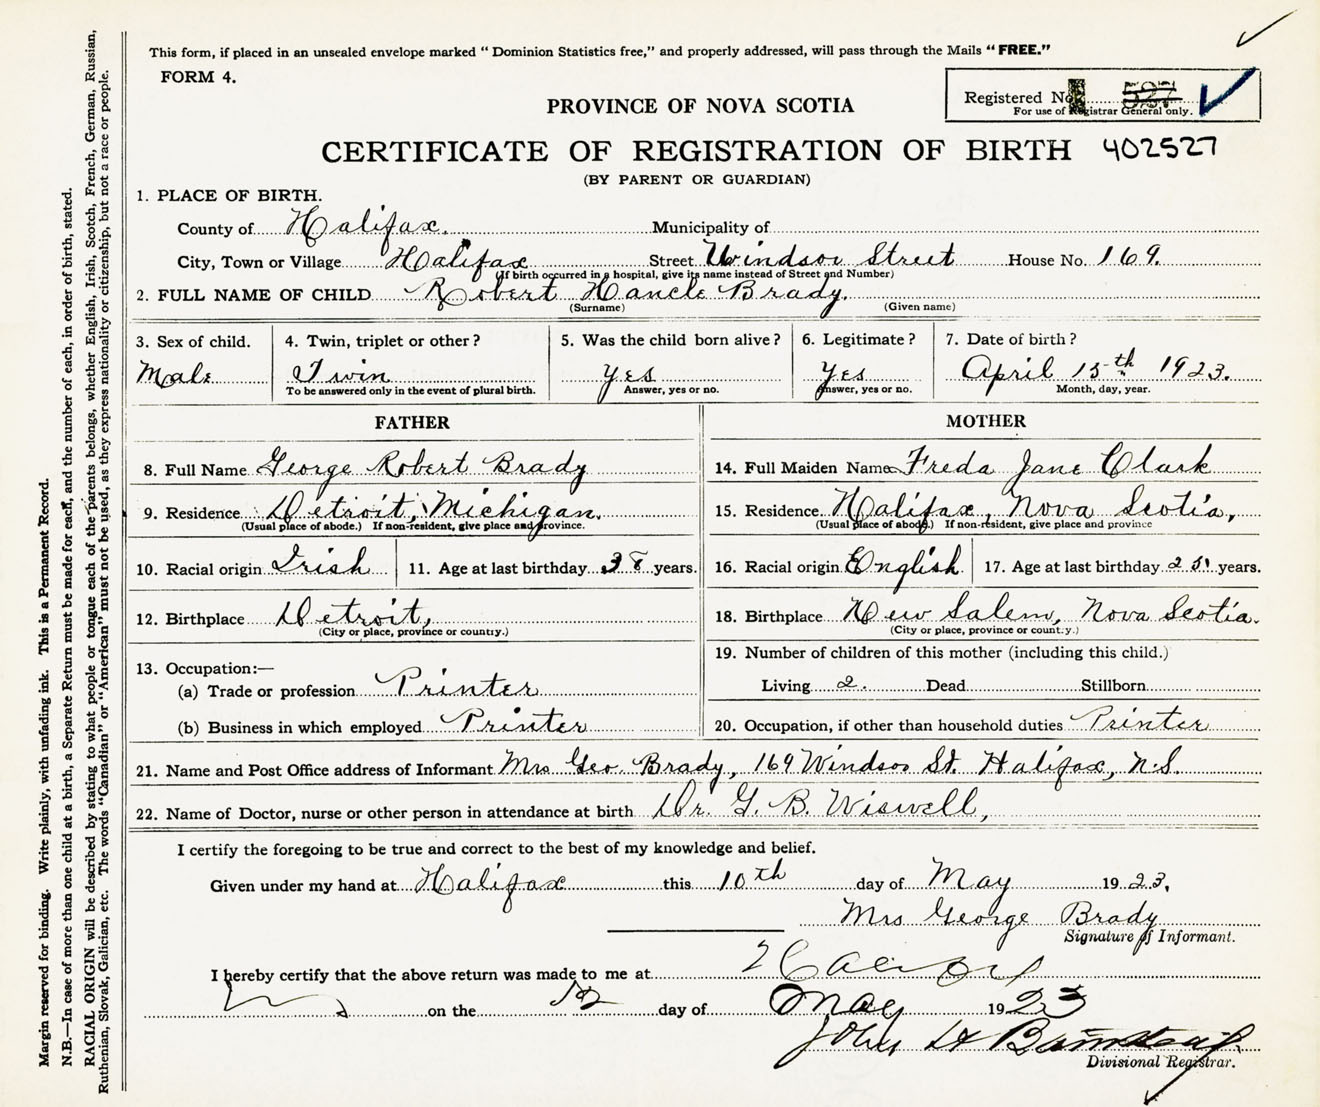 This form, if placed in an unsealed envelope marked "Dominion Statistics free," and properly addressed, will pass through the Mails "FREE."
FORM 4.
Registered No. 527
For use of Registrar General only.
PROVINCE OF NOVA SCOTIA
CERTIFICATE OF REGISTRATION OF BIRTH 402527
(BY PARENT OR GUARDIAN)
1. PLACE OF BIRTH.
County of Halifax. Municipality of
City, Town or Village Halifax Street Windsor Street House No. 169.
(If birth occurred in a hospital, give its name instead of Street and Number)
2. FULL NAME OF CHILD Robert Hancle Brady.
(Surname) (Given name)
3. Sex of child. 4. Twin, triplet or other? 5. Was the child born alive? 6. Legitimate? 7. Date of birth?
Male Twin Yes Yes April 15th 1923.
To be answered only in the event of plural birth. Answer, yes or no. Answer, yes or no. Month, day, year.
FATHER MOTHER
8. Full Name George Robert Brady 14. Full Maiden Name Freda Jane Clark
9. Residence Detroit, Michigan. 15. Residence Halifax, Nova Scotia,
(Usual place of abode.) If non-resident, give place and province. (Usual place of abode.) If non-resident, give place and province
10. Racial origin Irish 11. Age at last birthday 38 years. 16. Racial origin English 17. Age at last birthday 25. years.
12. Birthplace Detroit, 18. Birthplace New Salem, Nova Scotia.
(City or place, province or country.) (City or place, province or country.)
13. Occupation:— 19. Number of children of this mother (including this child.)
(a) Trade or profession Printer Living 2. Dead Stillborn
(b) Business in which employed Printer 20. Occupation, if other than household duties Printer
21. Name and Post Office address of Informant Mrs Geo. Brady, 169 Windsor St. Halifax, N.S.
22. Name of Doctor, nurse or other person in attendance at birth Dr. G. B. Wiswell,
I certify the foregoing to be true and correct to the best of my knowledge and belief.
Given under my hand at Halifax this 10th day of May 1923,
Mrs George Brady
Signature of Informant.
I hereby certify that the above return was made to me at Halifax
on the 12 day of May 1923
John H
Divisional Registrar.
Margin reserved for binding. Write plainly, with unfading ink. This is a Permanent Record.
N.B.—In case of more than one child at a birth, a Separate Return must be made for each, and the number of each, in order of birth, stated.
RACIAL ORIGIN will be described by stating to what people or tongue each of the parents belongs, whether English, Irish, Scotch, French, German, Russian,
Ruthenian, Slovak, Galician, etc. The words "Canadian" or "American" must not be used, as they express nationality or citizenship, but not a race or people.